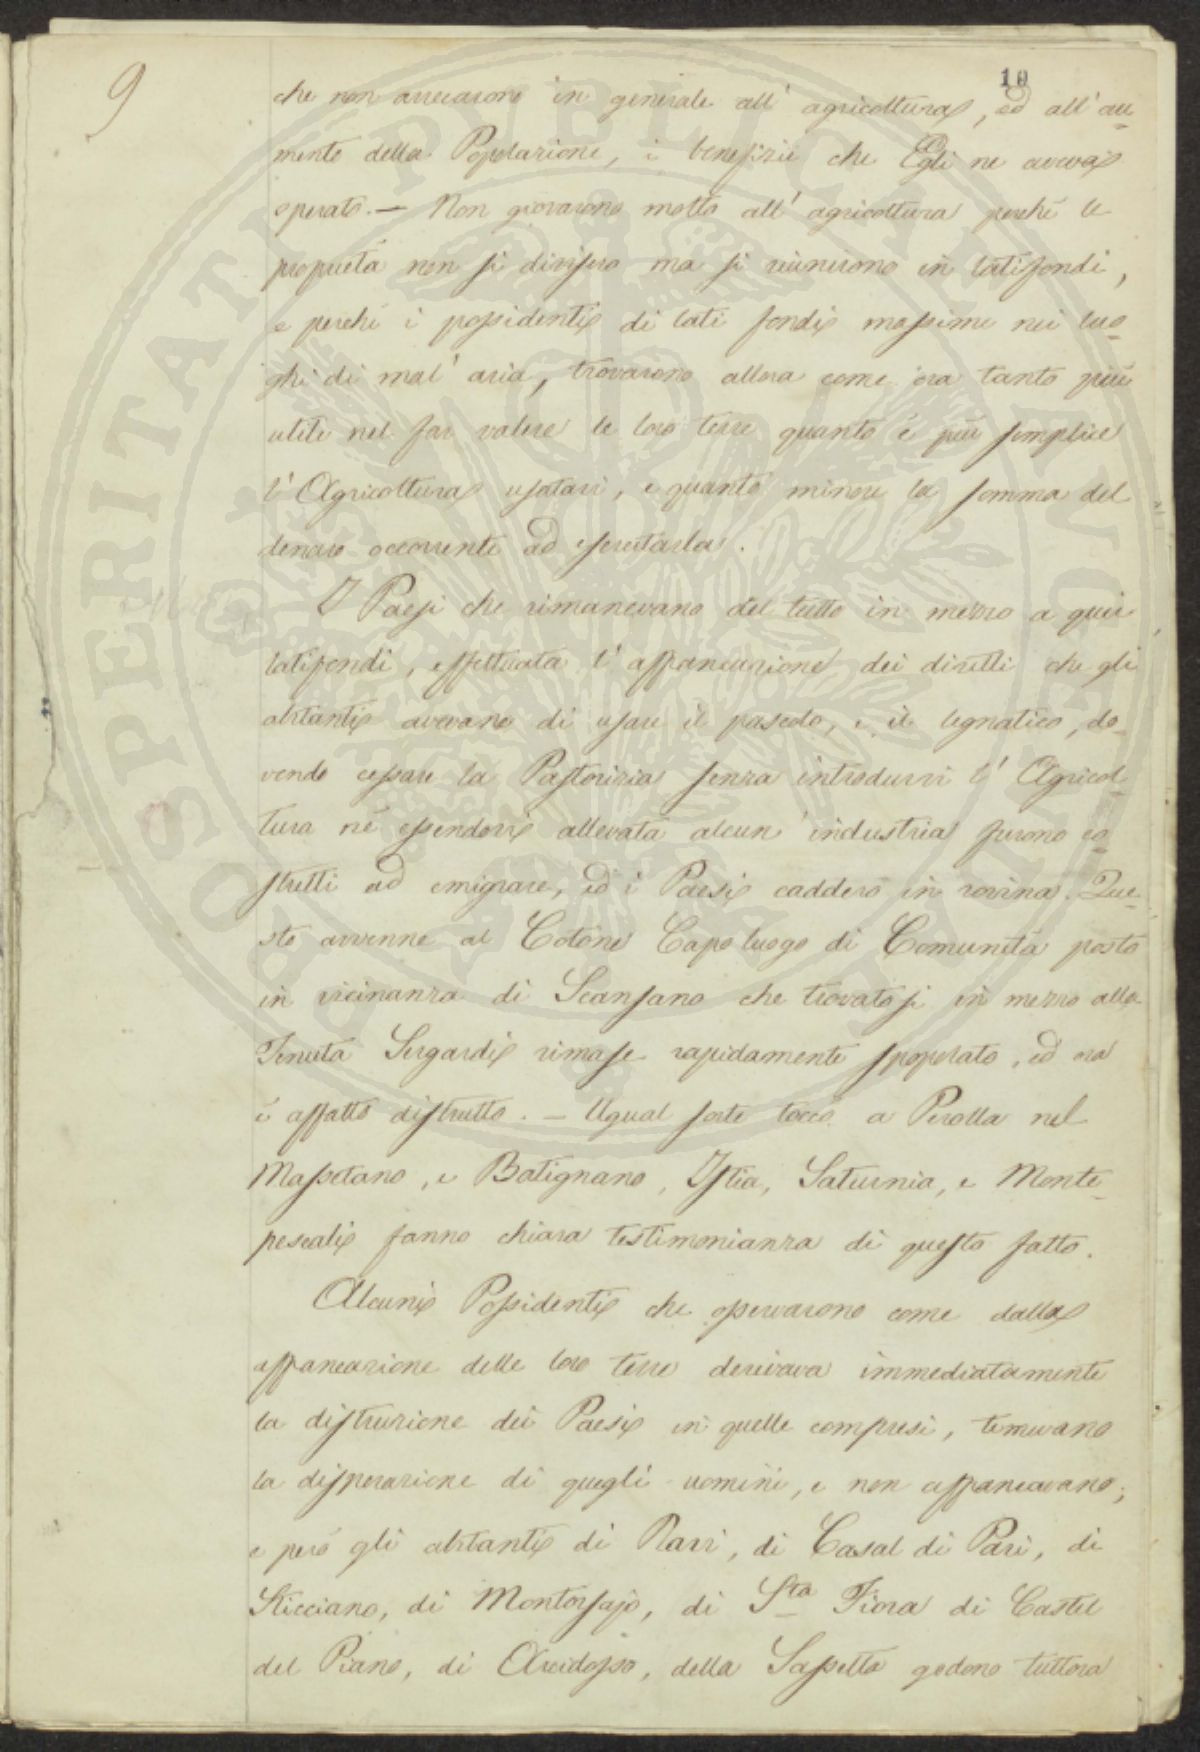 9
10
che non arrecarono in generale all' agricoltura, ed all' au=
mento della Popolazione, i benefizii che Egli ne aveva
sperato. — Non giovarono molto all' agricoltura perché le
proprietà non si divisero ma si riunirono in latifondi,
e perché i possidenti di lati fondi massime nei luo=
ghi di mal' aria, trovarono allora come ora tanto più
utile nel far valere le loro terre quanto è più semplice
l' Agricoltura usatavi, e quanto minore la somma del
denaro occorrente ad esercitarla.
I Paesi che rimanevano del tutto in mezzo a quei
latifondi, effettuata l' affrancazione dei diritti che gli
abitanti avevano di usare il pascolo, e il legnatico, do=
vendo cessare la Pastorizia senza introdurvi l' Agricol=
tura né essendovi allevata alcun' industria furono co=
stretti ad emigrare, ed i Paesi caddero in rovina. Que=
sto avvenne al Cotone Capo luogo di Comunità posto
in vicinanza di Scansano che trovatosi in mezzo alla
Tenuta Sergardi rimase rapidamente spopolato, ed ora
è affatto distrutto. — Ugual sorte toccò a Perolla nel
Massetano, e Batignano, Istia, Saturnia, e Monte=
pescali fanno chiara testimonianza di questo fatto.
Alcuni Possidenti che osservarono come dalla
affrancazione delle loro terre derivava immediatamente
la distruzione dei Paesi in quelle compresi, temevano
la disperazione di quegli uomini, e non affrancavano;
e però gli abitanti di Ravi, di Casal di Pari, di
Sticciano, di Montorsajo, di Sta Fiora di Castel
del Piano, di Arcidosso, della Sassetta godono tuttora
PROSPERITATI PUBLICAE